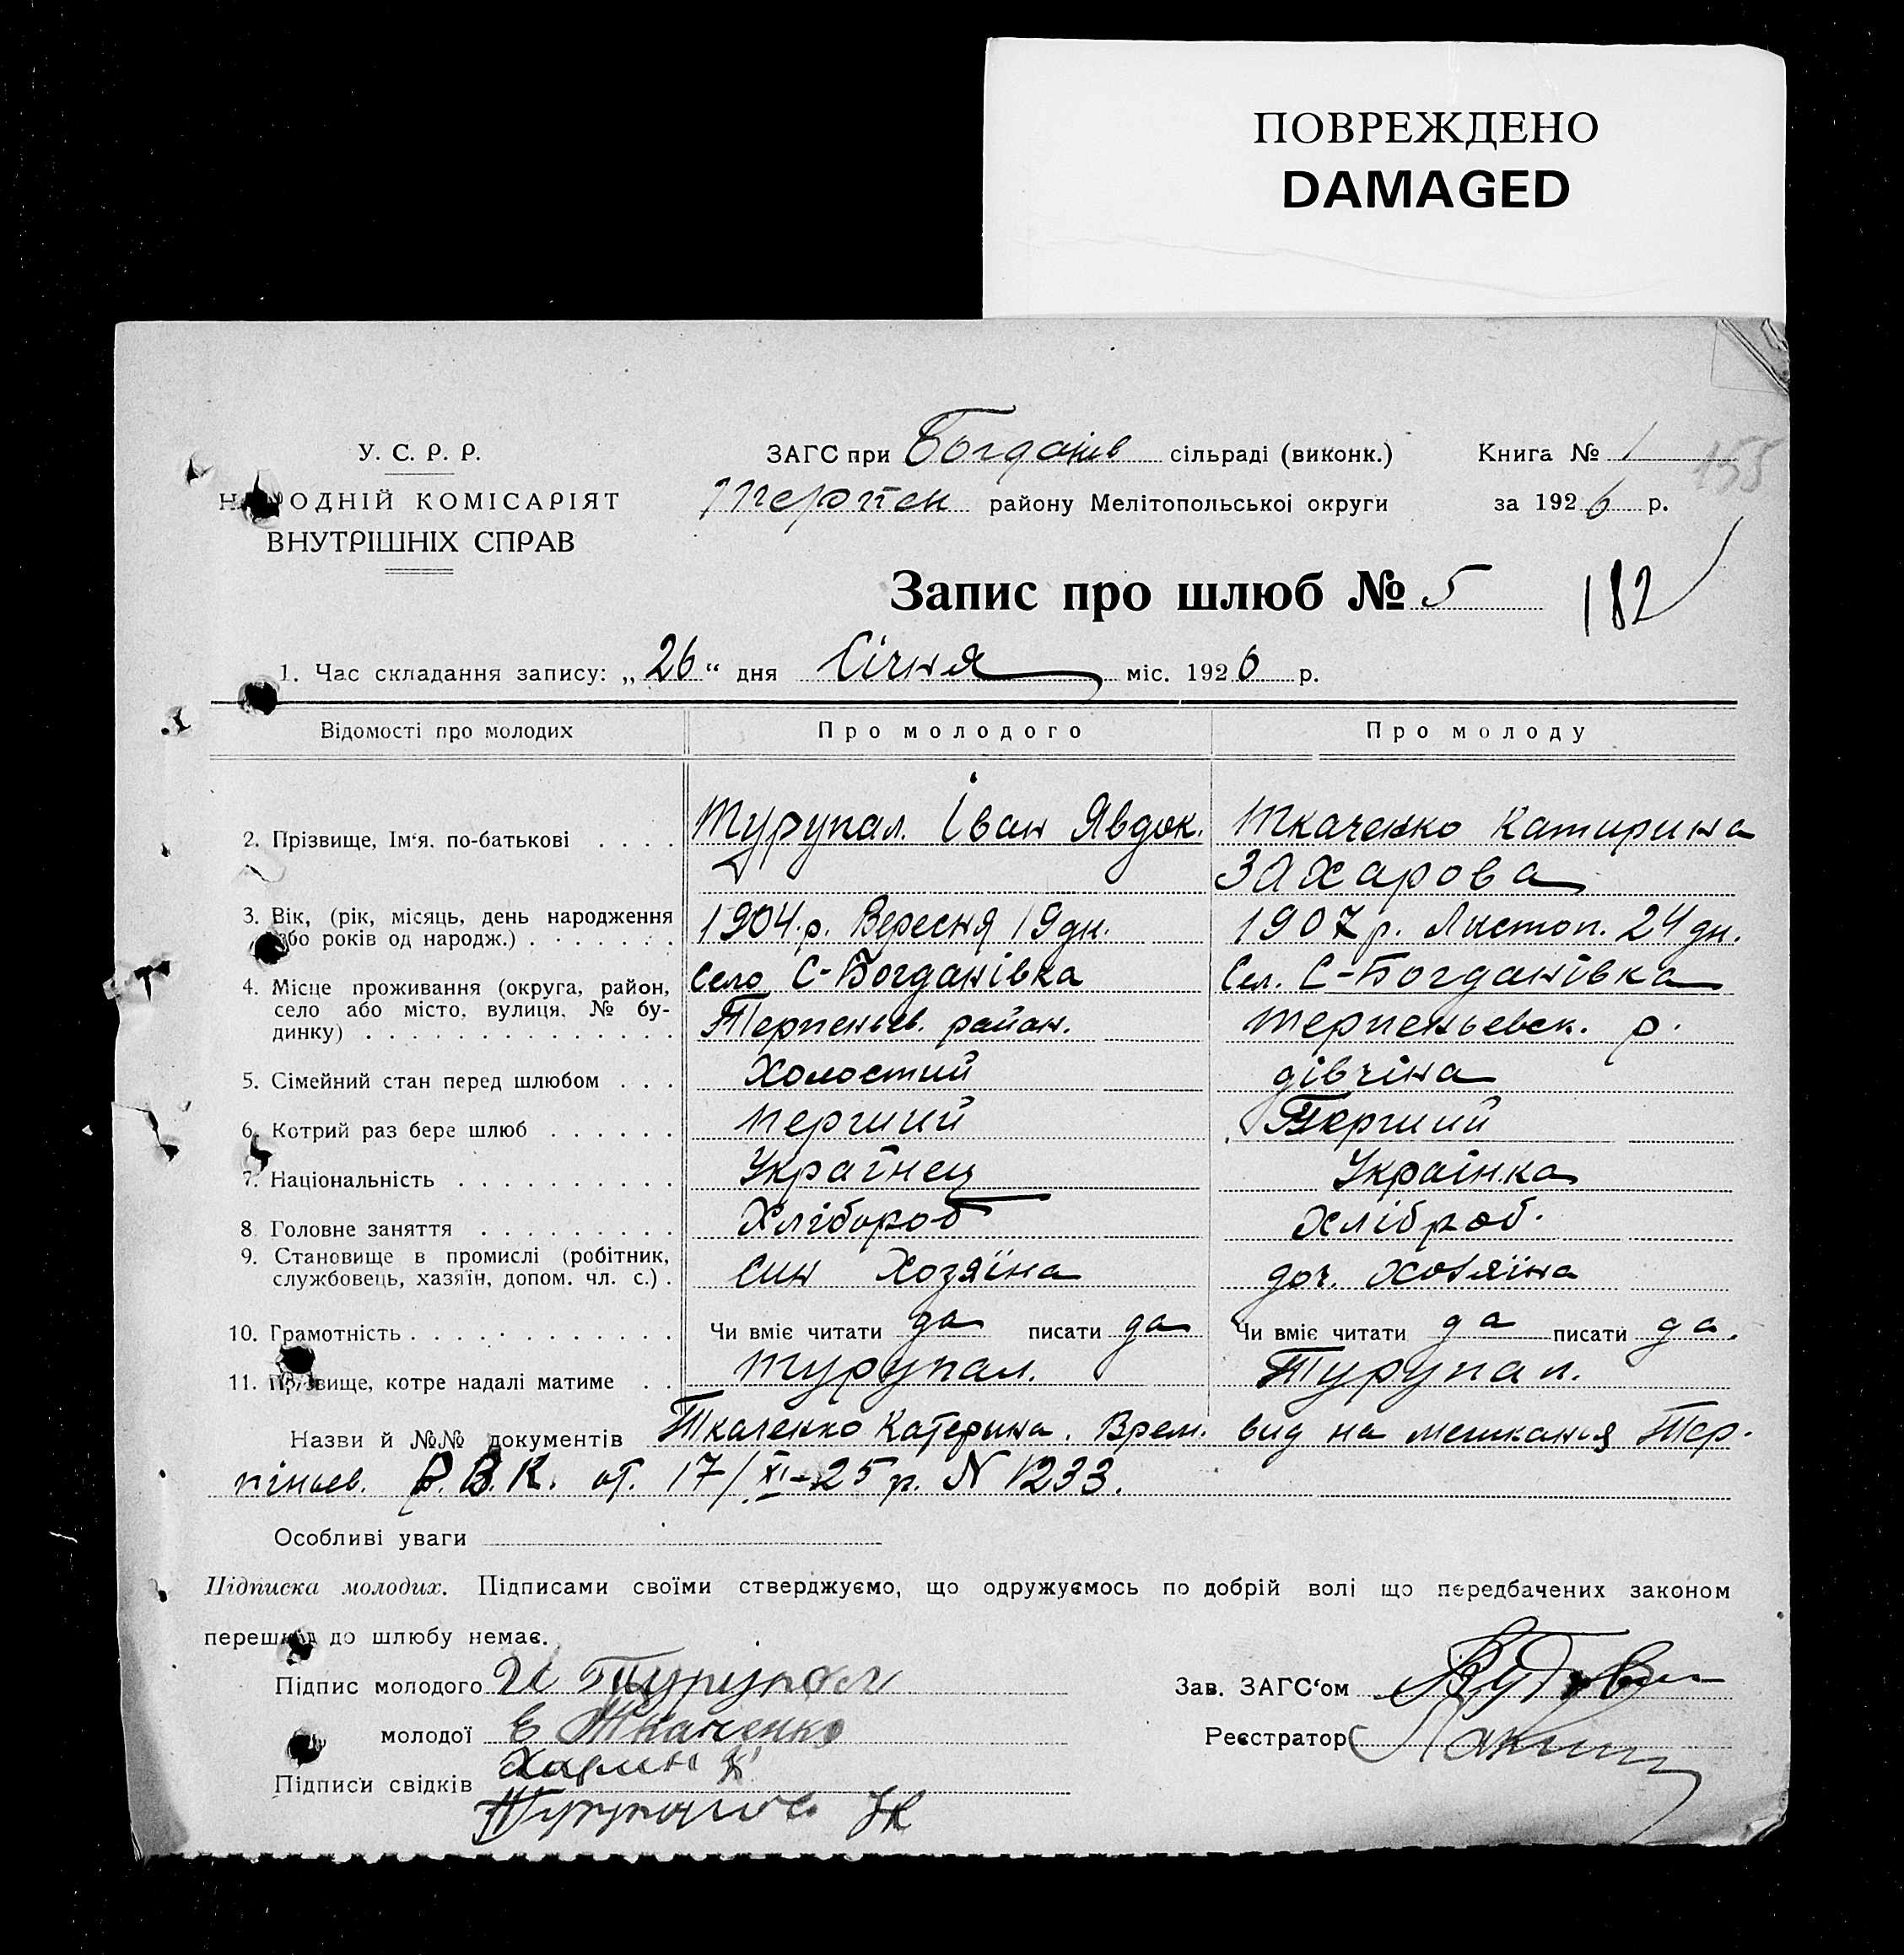 ПОВРЕЖДЕНО
DAMAGED
У. С. Р. Р.
НАРОДНІЙ КОМІСАРІЯТ
ВНУТРІШНІХ СПРАВ
ЗАГС при Богданів сільраді (виконк.)
Терпен району Мелітопольської округи
Книга № 1
155
за 1926 р.
Запис про шлюб № 5
182
1. Час складання запису: „26“ дня Січня міс. 1926 р.
Відомості про молодих Про молодого Про молоду
2. Прізвище, Ім‘я. по-батькові . . . . Турупал. Іван Явдок. Ткаченко Катирина
Захарова
3. Вік, (рік, місяць, день народження
або років од народж.) . . . . . . . 1904.р. Вересня 19 дн. 1907 р. Листоп. 24 дн.
4. Місце проживання (округа, район,
село або місто, вулиця, № бу-
динку) . . . . . . . . . . . . . .
Село С-Богданівка Сел. С-Богданівка
Терпеньев. район. Терпеньевск. р.
5. Сімейний стан перед шлюбом . . . Холостий дівчіна
6. Котрий раз бере шлюб . . . . . . перший Перший
7. Національність . . . . . . . . . . Українец Українка
8. Головне заняття . . . . . . . . . Хлібороб Хліброб.
9. Становище в промислі (робітник,
службовець, хазяїн, допом. чл. с.) . син Хозяїна доч. Хозяїна
10. Грамотність . . . . . . . . . . . . Чи вміє читати да писати да Чи вміє читати да писати да.
11. Прізвище, котре надалі матиме . . Турупал. Турупал.
Назви й №№ документів Ткаченко Катерина. Врем. вид на мешкання Тер-
піньев. Р.В.К. от. 17/XI-25 р. N 1233.
Особливі уваги
Підписка молодих. Підписами своїми стверджуємо, що одружуємось по добрій волі що передбачених законом
перешкід до шлюбу немає.
Підпис молодого И Турупал
Зав. ЗАГС‘ом
молодої Е Ткаченко
Реєстратор
Підписи свідків